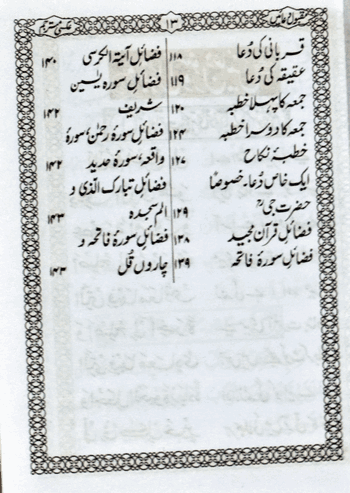 مقبول دعائیں ۱۳ عکسی مترجم
قربانی کی دُعا ۱۱۸
عقیقہ کی دُعا ۱۱۹
جمعہ کا پہلا خطبہ ۱۲۰
جمعہ کا دوسرا خطبہ ۱۲۴
خطبۂ نکاح ۱۲۷
ایک خاص دُعا۔ خصوصًا
حضرت جیؒ ۱۲۹
فضائلِ قرآن مجید ۱۳۸
فضائلِ سورۂ فاتحہ ۱۳۹
فضائل آیتہ الکرسی ۱۴۰
فضائلِ سورہ یٰسین
شریف ۱۴۲
فضائلِ سورۂ رحمٰن، سورۂ
واقعہ، سورۂ حدید ۱۴۲
فضائل تبارک الّذی و
الم سجدہ ۱۴۳
فضائلِ سورۂ فاتحہ و
چاروں قُل ۱۴۳